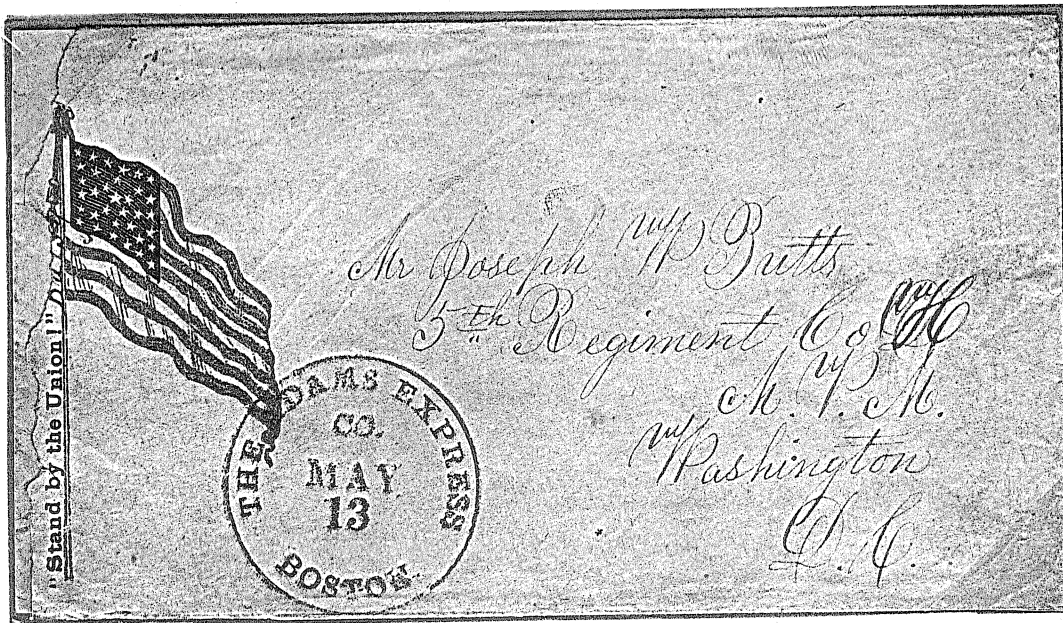 "Stand by the Union!"
THE ADAMS EXPRESS
CO.
MAY
13
BOSTON
Mr Joseph W Butts
5th Regiment Co H
M. V. M.
Washington
D. C.